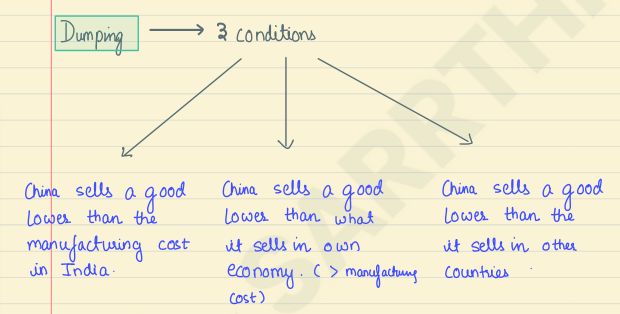 Dumping → 3 conditions
China sells a good
lower than the
manufacturing cost
in India.
China sells a good
lower than what
it sells in own
economy. ( > manufacturing
cost)
China sells a good
lower than the
it sells in other
countries
SARRTHI